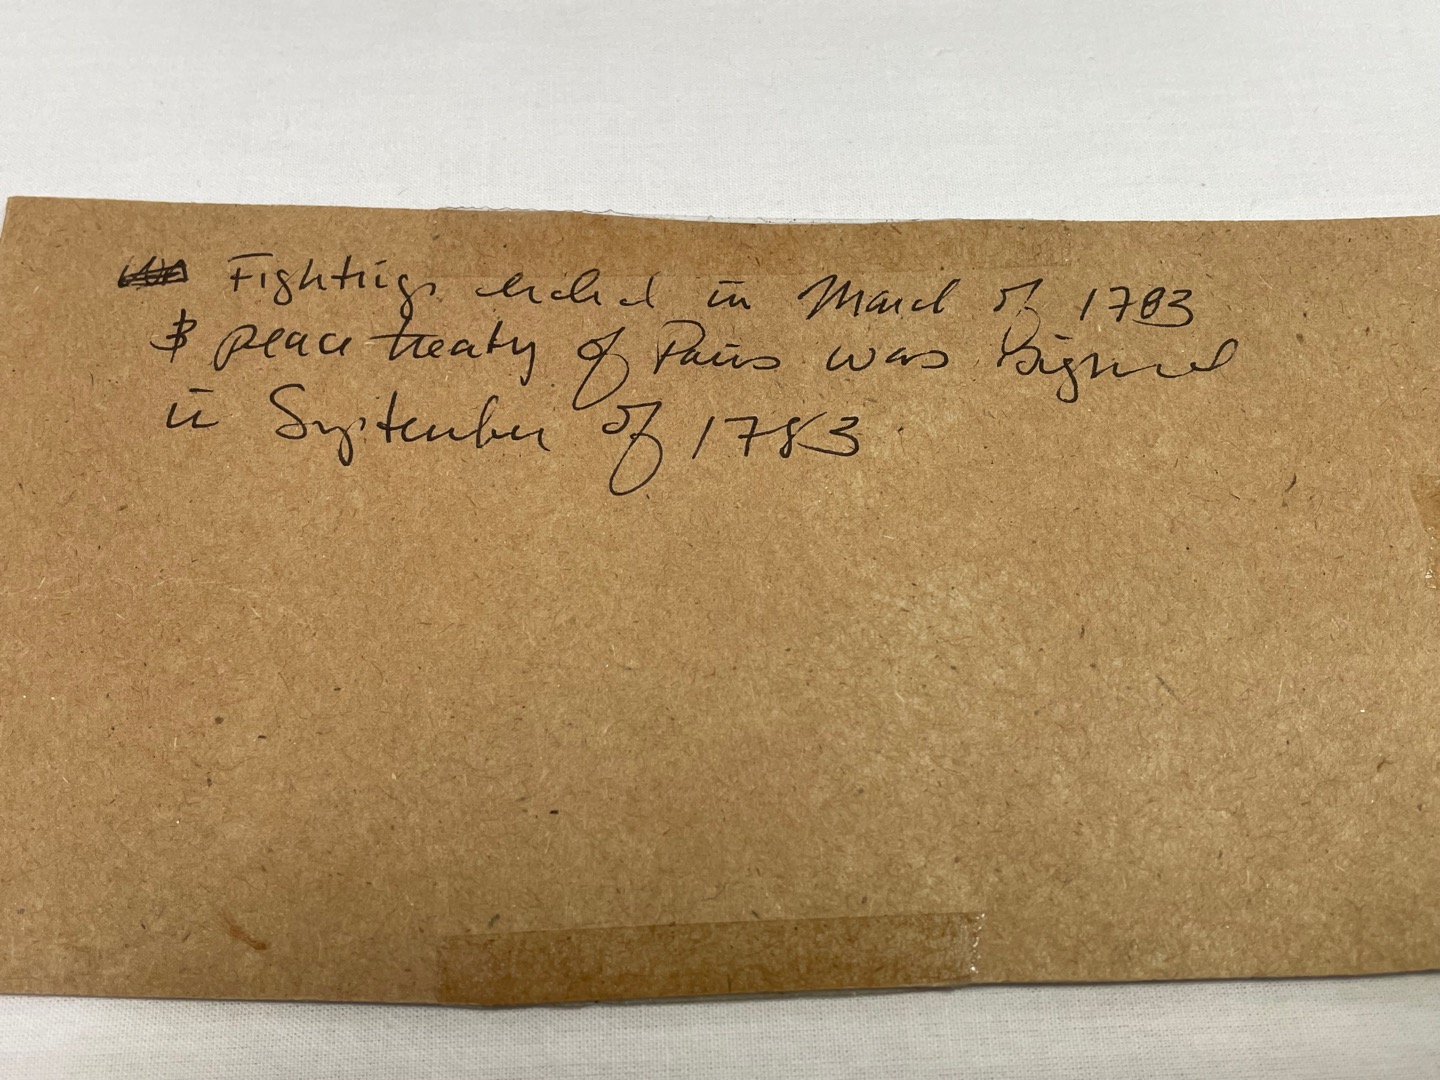 Fighting ended in March of 1783
& peace treaty of Paris was signed
in September of 1783